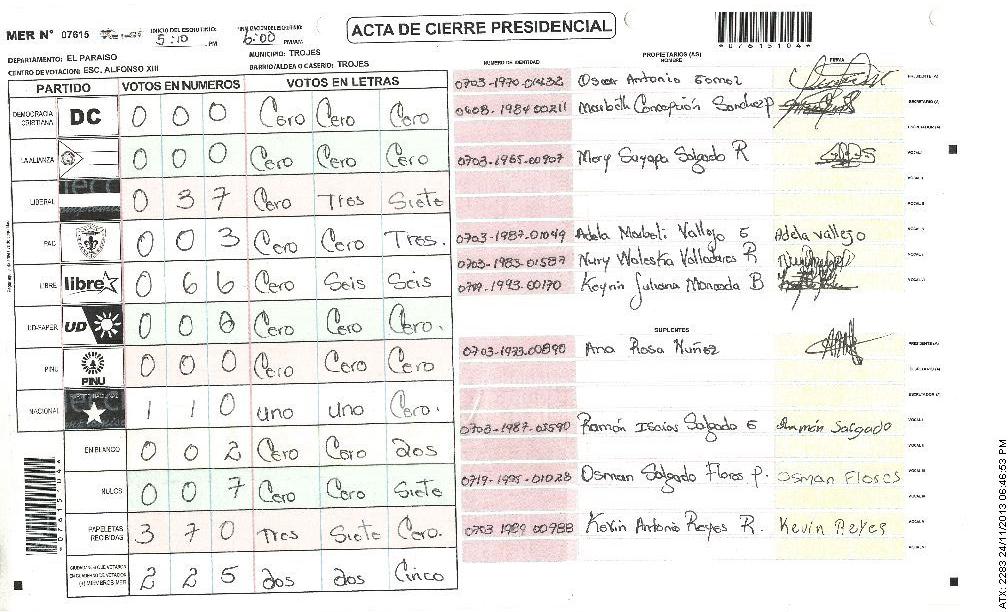 ACTA DE CIERRE PRESIDENCIAL
MER N° 07615
INICIO DEL ESCRUTINIO: 5:10 PM
6:00 PM/AM
*07615104*
DEPARTAMENTO: EL PARAISO
MUNICIPIO: TROJES
CENTRO DE VOTACION: ESC. ALFONSO XIII
BARRIO/ALDEA O CASERIO: TROJES
PARTIDO VOTOS EN NUMEROS VOTOS EN LETRAS
DEMOCRACIA CRISTIANA DC 0 0 0 Cero Cero Cero
LA ALIANZA 0 0 0 Cero Cero Cero
LIBERAL 0 3 7 Cero Tres Siete
PAC 0 0 3 Cero Cero Tres.
LIBRE libre 0 6 6 Cero Seis Seis
UD-FAPER UD 0 0 0 Cero Cero Cero.
PINU PINU 0 0 0 Cero Cero Cero
NACIONAL 1 1 0 uno uno Cero.
EN BLANCO 0 0 2 Cero Cero dos
NULOS 0 0 7 Cero Cero Siete
PAPELETAS RECIBIDAS 3 7 0 Tres Siete Cero.
CIUDADANOS QUE VOTARON EN CUADERNO DE VOTADOS (+) MIEMBROS MER 2 2 5 dos dos Cinco
NUMERO DE IDENTIDAD
PROPIETARIOS (AS)
NOMBRE
FIRMA
0703-1970-01432 Oscar Antonio Gomez PRESIDENTE (A)
0608-1984-00211 Maribeth Concepción Sanchez P SECRETARIO (A)
ESCRUTADOR (A)
0703-1965-00907 Mery Suyapa Salgado R VOCAL I
VOCAL II
VOCAL III
0703-1987-01049 Adela Maribeli Vallejo G Adela Vallejo
0703-1983-01587 Nury Waleska Valladares R
1993-00170 Keyni Juliana Moncada B
SUPLENTES
0703-1933-00890 Ana Rosa Nuñez PRESIDENTE (A)
SECRETARIO (A)
ESCRUTADOR (A)
0703-1987-03590 Ramón Isaias Salgado G Ramón Salgado VOCAL I
VOCAL II
0719-1995-01028 Osman Salgado Flores P. Osman Flores VOCAL III
0703 1989 00988 Kevin Antonio Reyes R. Kevin Reyes
*07615104*
ATX: 2283 24/11/2013 06:46:53 PM